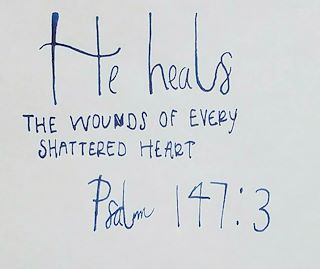 He heals
THE WOUNDS OF EVERY
SHATTERED HEART
Psalm 147:3